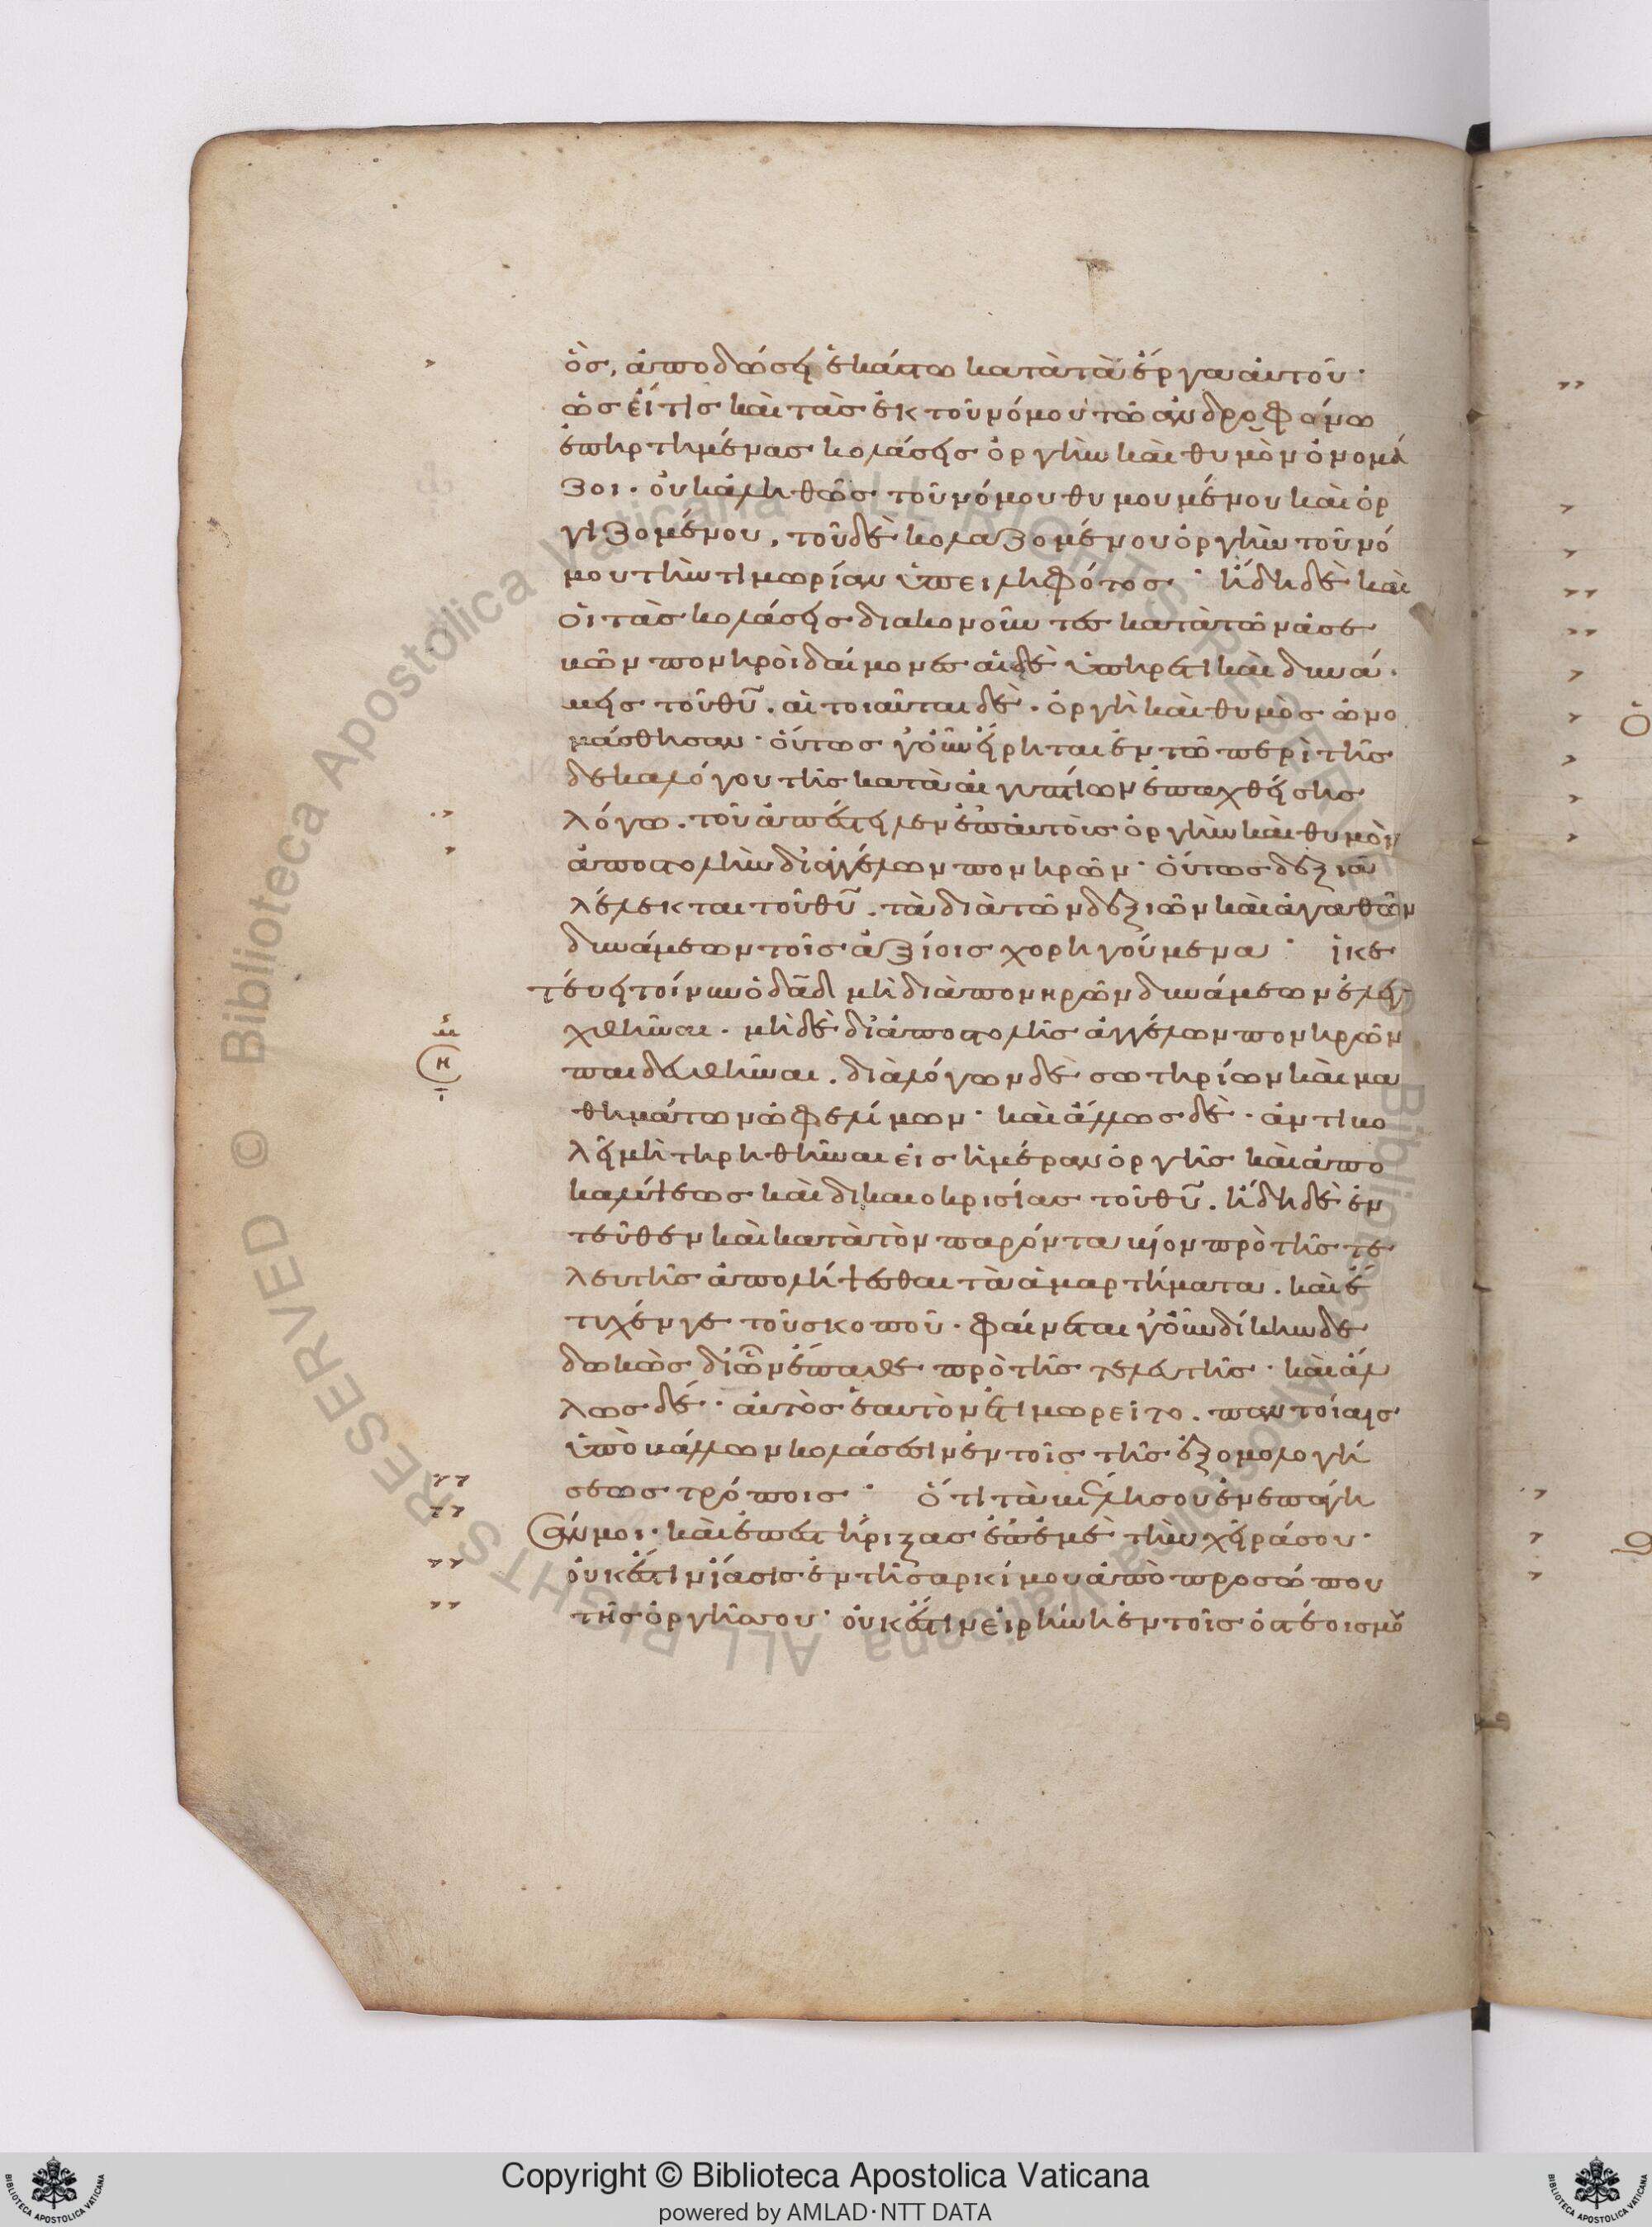 ὃς, ἀποδώσει ἑκάστω κατὰ τὰ ἔργα αὐτοῦ·
ὡσεί τις καὶ τὰς ἐκ τοῦ νόμου τῶ ἀνδροφόνω
ἐπηρτημένας κολάσεις ὀργὴν καὶ θυμὸν ὀνομά
ζοι· οὐκ ἀληθῶς τοῦ νόμου θυμουμένου καὶ ὀρ
γιζομένου, τοῦ δὲ κολαζομένου ὀργὴν τοῦ νό
μου τὴν τιμωρίαν ὑπειληφότος· ἤδη δὲ καὶ
οἱ τὰς κολάσεις διακονοῦντες κατὰ τῶν ἀσε
βῶν πονηροὶ δαίμονες αἱ δὲ ὑπηρετικαὶ δυνά
μεις τοῦ θυ. αἱ τοιαῦται δὲ· ὀργὴ καὶ θυμὸς ὠνο
μάσθησαν· οὕτως γοῦν εἴρηται ἐν τῶ περὶ τῆς
δεκαλόγου τῆς κατὰ αἰγυπτίων ἐπαχθείσης
λόγω. τοῦ ἀπέστειλεν ἐπ αὐτοὺς ὀργὴν καὶ θυμὸν
ἀποστολὴν δι ἀγγέλων πονηρῶν· οὕτως δεξιὰ
λέλεκται τοῦ θυ. τὰ διὰ τῶν δεξιῶν καὶ ἀγαθῶν
δυνάμεων τοῖς ἀξίοις χορηγούμενα· ἱκε
τεύει τοίνυν ὁ δαδ μὴ διὰ πονηρῶν δυνάμεων ἐλεγ
χθῆναι. μὴ δὲ δι ἀποστολῆς ἀγγέλων πονηρῶν
παιδευθῆναι. διὰ λόγων δὲ σωτηρίων καὶ μα
θημάτων ὠφελίμων· καὶ ἄλλως δὲ· ἀντιβο
λεῖ μὴ τηρηθῆναι εἰς ἡμέραν ὀργῆς καὶ ἀπο
καλύψεως καὶ δικαιοκρισίας τοῦ θυ. ἤδη δὲ ἐν
τεῦθεν καὶ κατὰ τὸν παρόντα βίον πρὸ τῆς τε
λευτῆς ἀπολήψεσθαι τὰ ἁμαρτήματα. καὶ ἔ
τυχέν γε τοῦ σκοποῦ· φαίνεται γοῦν δίκην δε
δωκὼς δι ὧν ἔπαθε πρὸ τῆς τελευτῆς· καὶ ἄλ
λως δέ· αὐτὸς ἑαυτὸν ἐτιμωρεῖτο. παντοίαις
ὑποβάλλων κολάσεσιν ἐν τοῖς τῆς ἐξομολογή
σεως τρόποις· ὅτι τὰ βέλη σου ἐνεπάγη
σάν μοι· καὶ ἐπεστήριξας ἐπ ἐμὲ τὴν χεῖρά σου·
οὐκ ἔστιν ἴασις ἐν τῆ σαρκί μου ἀπὸ προσώπου
τῆς ὀργῆς σου· οὐκ ἔστιν εἰρήνη ἐν τοῖς ὀστέοις μου
Copyright © Biblioteca Apostolica Vaticana
powered by AMLAD·NTT DATA